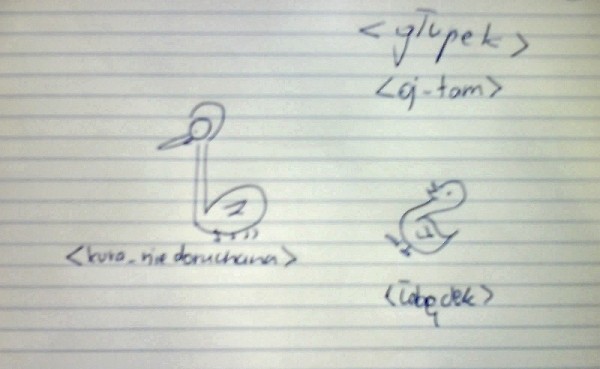 <głupek>
<oj-tam>
<kura_niedoruchana>
<łabędek>